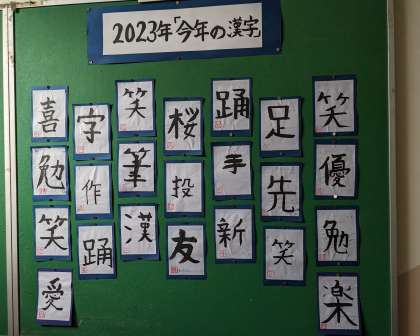 2023年「今年の漢字」
喜 字 笑 桜 踊 足 笑
勉 作 筆 投 手 先 優
笑 踊 漢 友 新 笑 勉
愛 楽